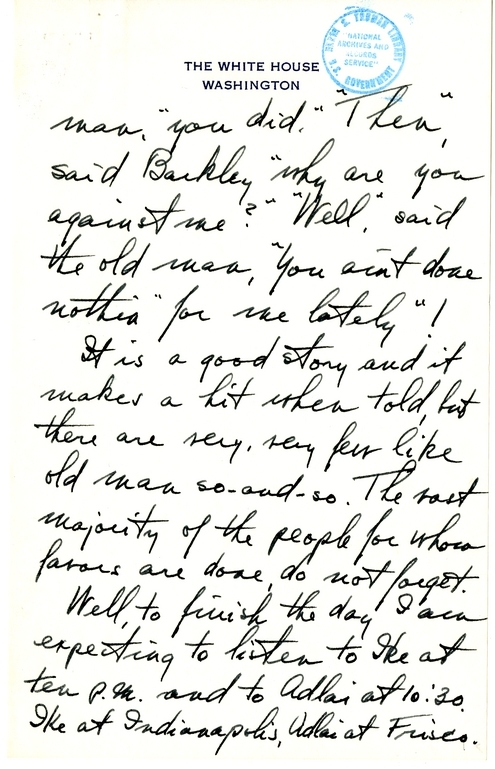 HARRY S. TRUMAN LIBRARY
"NATIONAL
ARCHIVES AND
RECORDS
SERVICE"
U.S. GOVERNMENT
THE WHITE HOUSE
WASHINGTON
man, "you did." "Then",
said Barkley "why are you
against me?" "Well," said
the old man, "You aint done
nothin" for me lately"!
It is a good story and it
makes a hit when told, but
there are very, very few like
old man so-and-so. The vast
majority of the people for whom
favors are done, do not forget.
Well, to finish the day I am
expecting to listen to Ike at
ten p.m. and to Adlai at 10:30.
Ike at Indianapolis, Adlai at Frisco.